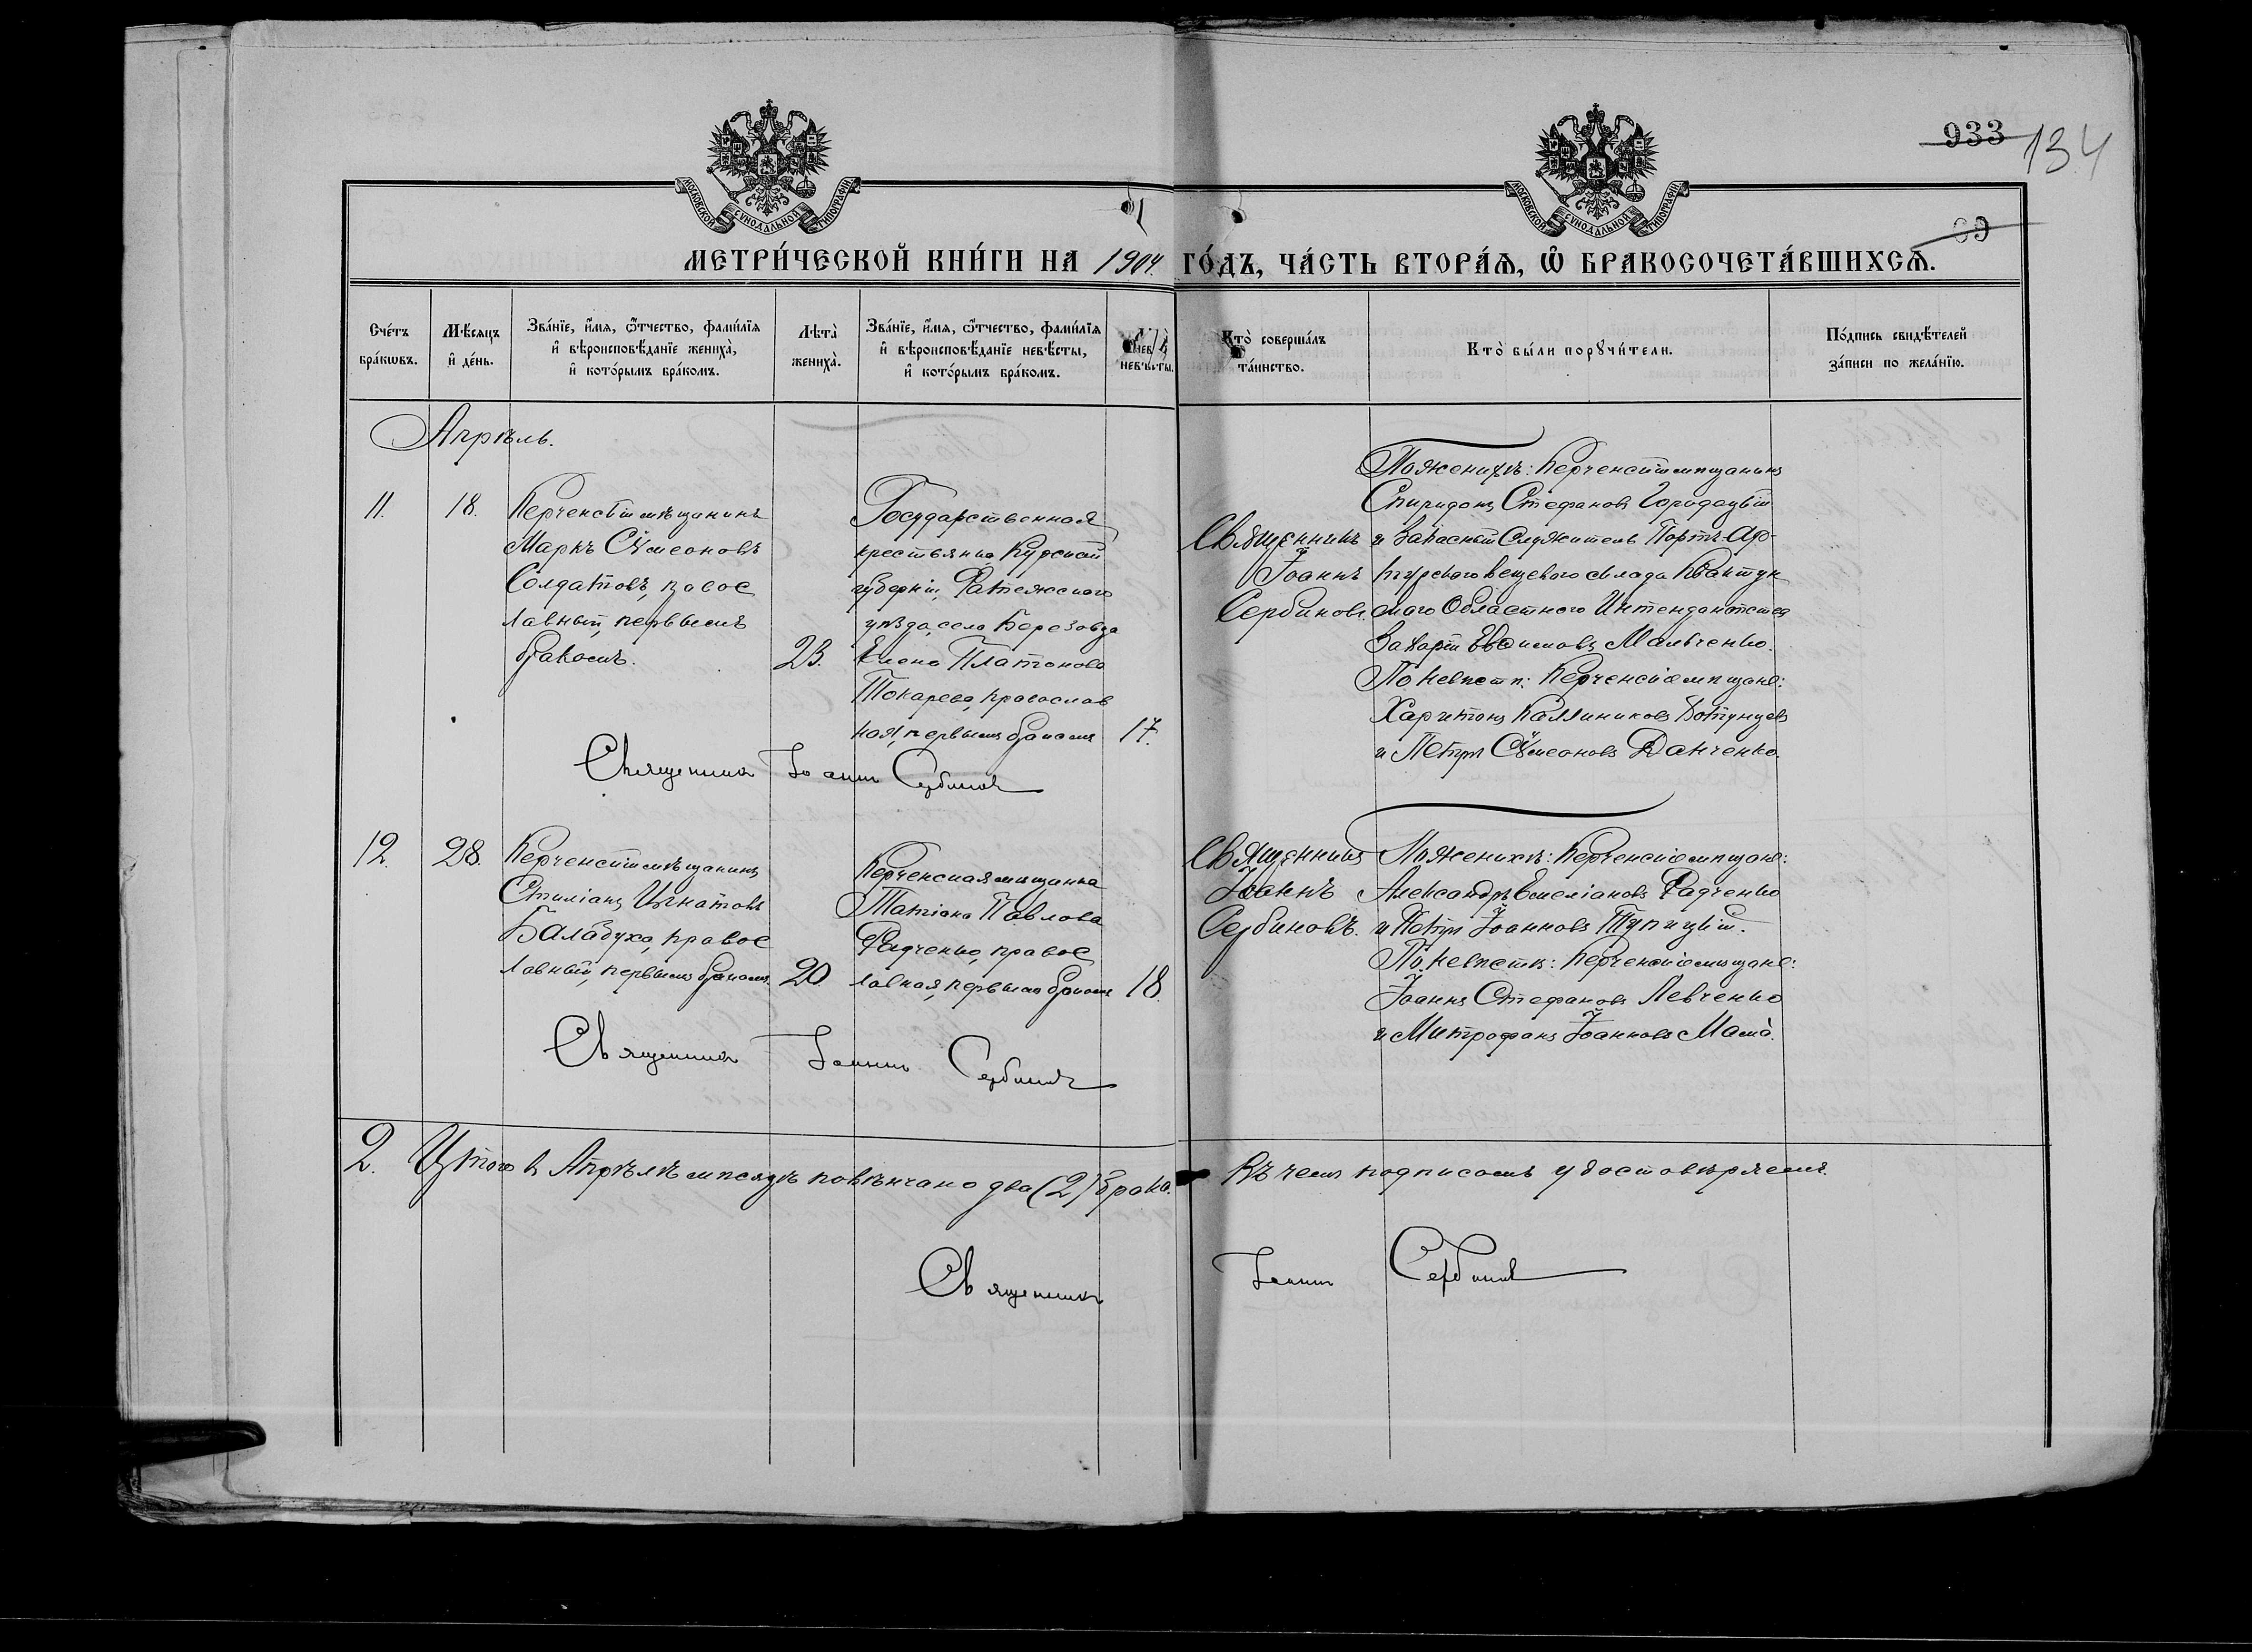 933 134
69
МОСКОВСКОЙ СѴНОДАЛЬНОЙ ТИПОГРАФІИ
МОСКОВСКОЙ СѴНОДАЛЬНОЙ ТИПОГРАФІИ
МЕТРИ́ЧЕСКОЙ КНИ́ГИ НА 1904. ГО́ДЪ, ЧА́СТЬ ВТОРА́Я, Ѿ БРАКОСОЧЕТА́ВШИХСЯ.
Сче́тъ
бра́кѡвъ.
Мѣ́сяцъ
и҆ де́нь.
Зва́нїе, и҆́мя, ѻ҆́тчество, фами́лїя
и҆ вѣроисповѣ́данїе жениха̀,
и҆ кото́рымъ бра́комъ.
Лѣта̀
жениха̀.
Зва́нїе, и҆́мя, ѻ҆́тчество, фами́лїя
и҆ вѣроисповѣ́данїе невѣ́сты,
и҆ кото́рымъ бра́комъ.
невѣ́сты.
Кто̀ соверша́лъ
та́инство.
Кто̀ бы́ли порꙋчи́тели.
По́дпись свидѣ́телей
за́писи по жела́нїю.
Апрѣль.
11.
18.
Керченскій мѣщанинъ
Маркъ Сѵмеоновъ
Солдатовъ, провос
лавный, первымъ
бракомъ.
23.
Государственная
крестьянка Курской
губерніи, Фатежскаго
уѣзда, села Березовца
Елена Платонова
Токарева, православ
ная, первымъ бракомъ
17.
Священникъ
Іоаннъ
Сербиновъ.
По женихѣ: Керченскій мѣщанинъ
Спиридонъ Стефановъ Городецкій
и Запасный Служитель Портъ-Ар-
турскаго вещевого склада Квантун
скаго Областного Интендантства
Захарій Евѳимовъ Мальченко.
По невѣстѣ: Керченскіе мѣщане:
Харитонъ Каллиниковъ
и Петръ Сѵмеоновъ Данченко.
Священникъ Іоаннъ Сербиновъ
12.
28.
Керченскій мѣщанинъ
Стиліанъ Игнатовъ
Балабуха, правос
лавный, первымъ бракомъ.
20
Керченская мѣщанка
Татіана Павлова
Радченко, правос
лавная, первымъ бракомъ
18.
Священникъ
Іоаннъ
Сербиновъ.
По женихѣ: Керченскіе мѣщане:
Александръ Емеліановъ Радченко
и Петръ Іоанновъ Тупицкій.
По невѣстѣ: Керченскіе мѣщане:
Іоаннъ Стефановъ Левченко
и Митрофанъ Іоанновъ Мама̀.
Священникъ Іоаннъ Сербиновъ
2. Итого въ Апрѣлѣ мѣсяцѣ повѣнчано два (2) брака. Въ чемъ подписомъ удостовѣряемъ.
Священникъ Іоаннъ Сербиновъ